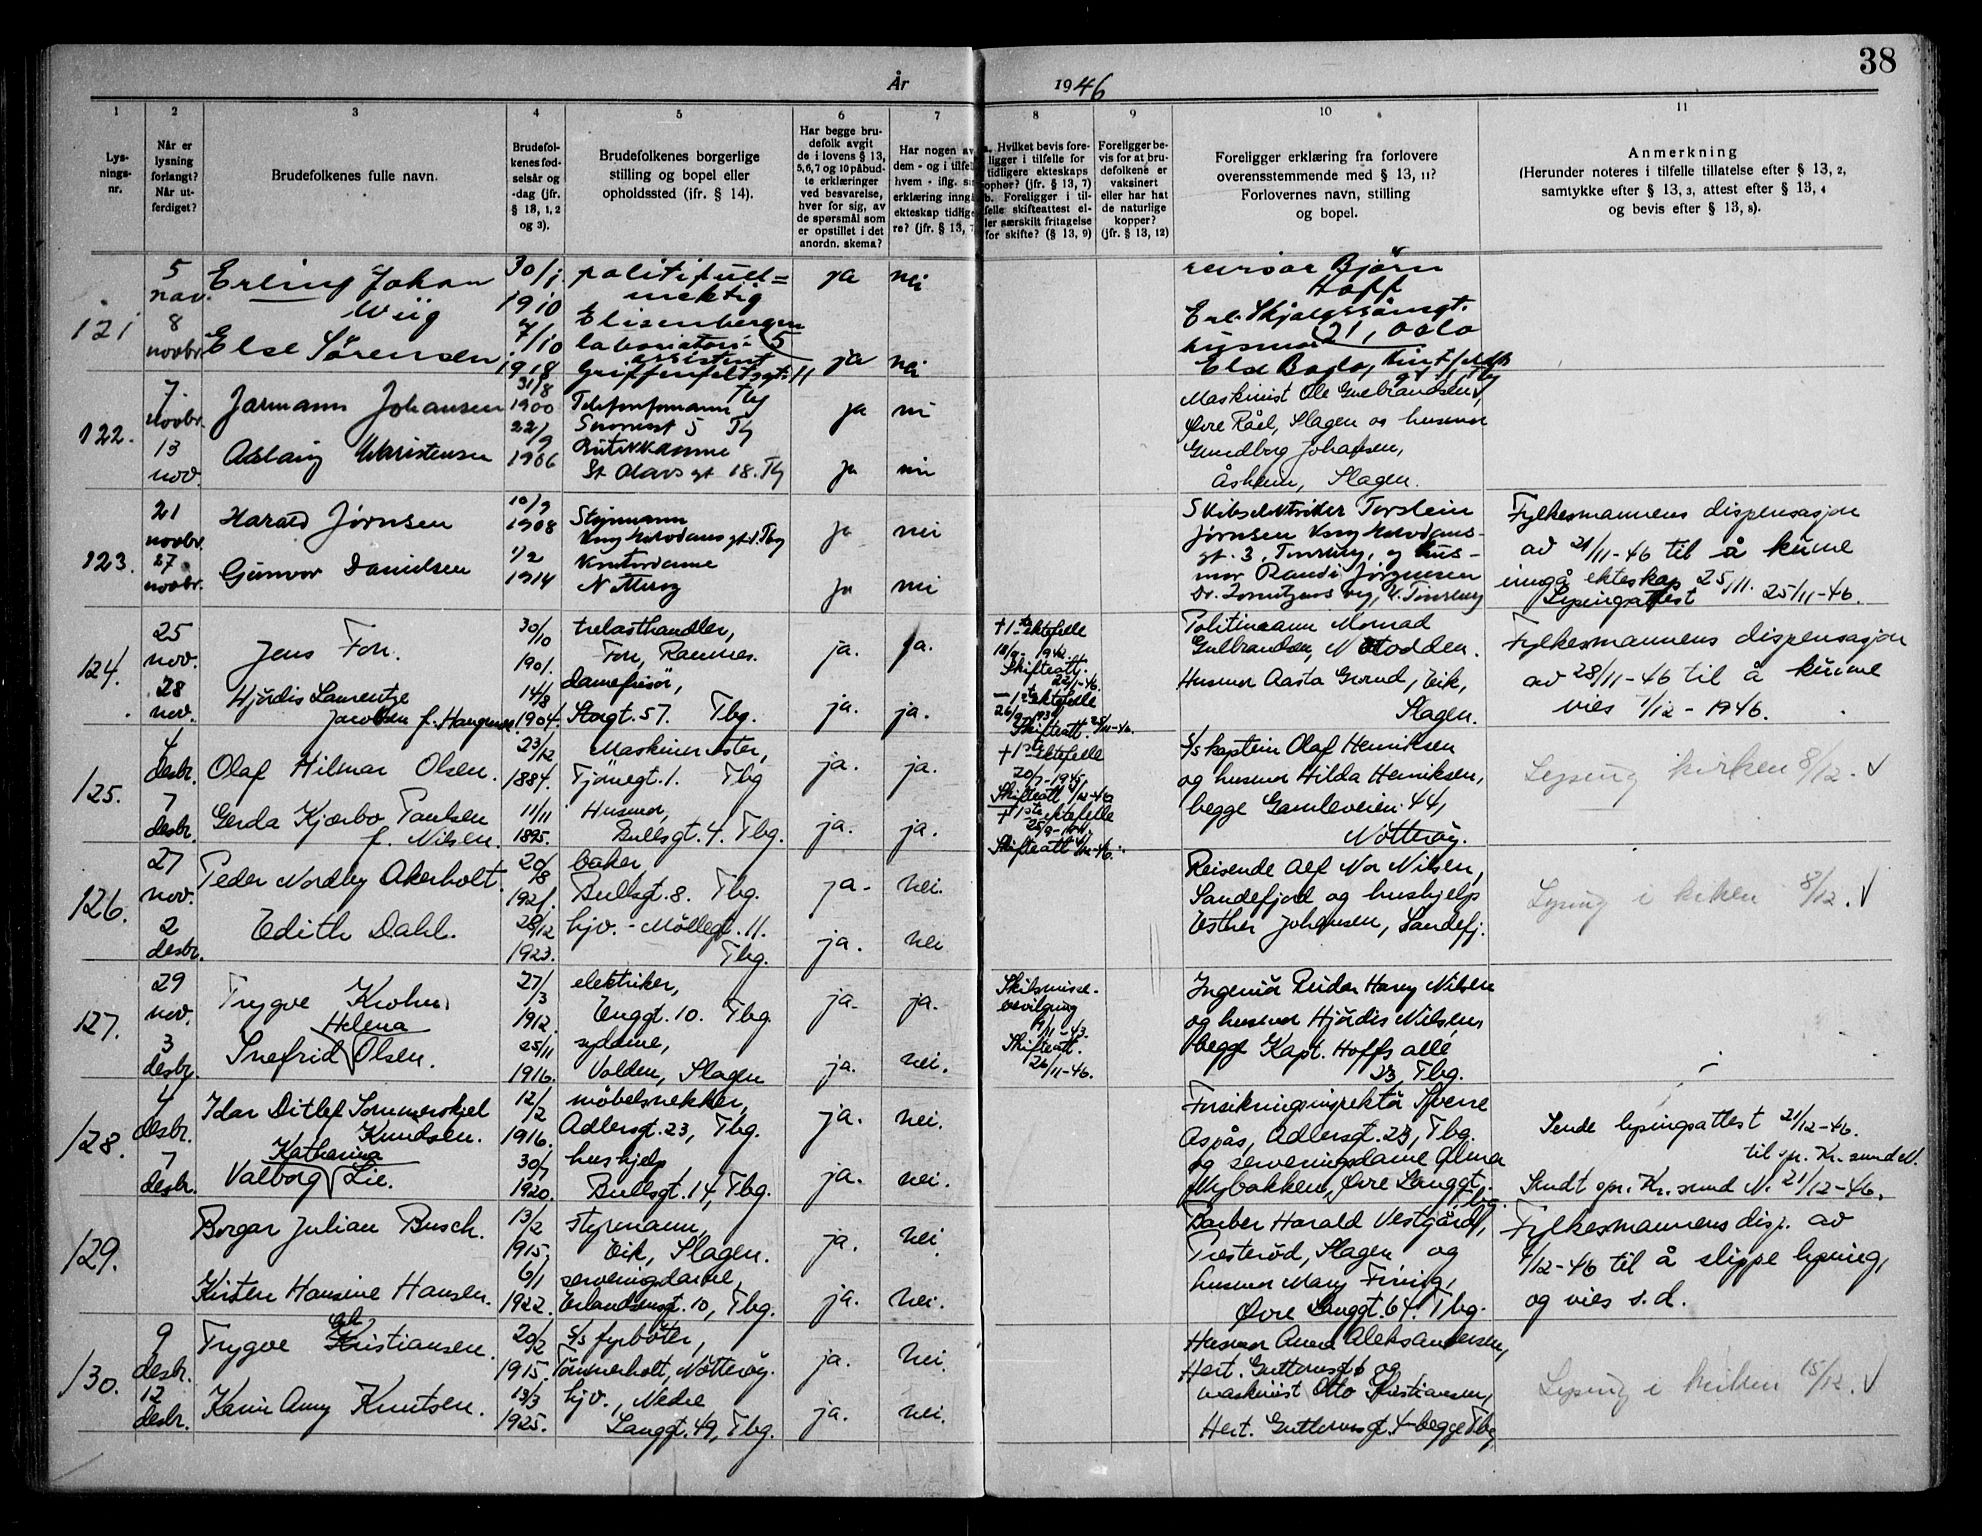 38
År 1946
1
2
3
4
5
6
7
8
9
10
11
Lys-
nings-
nr.
Når er
lysning
forlangt?
Når ut-
ferdiget?
Brudefolkenes fulle navn.
Brudefol-
kenes fød-
selsår og
-dag (jfr.
§ 13, 1, 2
og 3).
Brudefolkenes borgerlige
stilling og bopel eller
opholdssted (ifr. § 14).
Har begge bru-
defolk avgit
de i lovens § 13,
5, 6, 7 og 10 påbud-
te erklæringer
ved besvarelse,
hver for sig, av
de spørsmål som
er opstillet i det
anordn. skema?
Har nogen av
dem - og i tilfelle
hvem - iflg. sin
erklæring inngå
ekteskap tidlige-
re? (jfr. § 13, 7
a. Hvilket bevis fore-
ligger i tilfelle for
tidligere ekteskaps
ophør? (jfr. § 13, 7)
b. Foreligger i til-
felle skifteattest el-
ler særskilt fritagelse
for skifte? (§ 13, 9)
Foreligger be-
vis for at bru-
defolkene er
vaksinert
eller har hat
de naturlige
kopper?
(jfr. § 13, 12)
Foreligger erklæring fra forlovere
overensstemmende med § 13, 11?
Forlovernes navn, stilling
og bopel.
Anmerkning
(Herunder noteres i tilfelle tillatelse efter § 13, 2,
samtykke efter § 13, 3, attest efter § 13, 4
og bevis efter § 13, 8).
121
5
nov.
8
novbr.
Erling Johan
Wiig
Else Sörensen
30/1
1910
7/10
1918
politifull=
mektig
Elisenbergvn
5
laboratorie
assistent
Griffenfeldtsgt. 11
Tbg
ja nei
ja nei
revisor Björn
Hoff
Erl. Skjalgssönsgt.
21, Oslo
husmor
122.
7.
novbr.
13
nov.
Jarmann Johansen
Aslaug Christensen
31/8
1900
22/9
1906
St. Olavs gt 18. Tbg
ja
ja
Maskinist Ole Gulbrandsen,
Øvre Råel, Slagen og husmor
Gundborg Johansen,
Åsheim, Slagen.
123.
21
novbr.
27
novbr.
Harald Jørnsen
Gunvor Danielsen
10/9
1908
1/2
1914
Styrmann
Kontordame
Nøtterøy
ja nei
ja nei
Skibselektriker Torstein
Jørnsen
gt. 3, Tønsberg, og hus-
mor Randi Jørgensen
Fylkesmannens dispensasjon
av 21/11-46 til å kunne
inngå ekteskap 25/11.
Lysingsattest 25/11-46.
124.
25
nov.
28
nov.
Jens Fon.
Hjördis Laurentze
Jacobsen f. Haugene
30/10
1901.
14/8
1904.
trelasthandler,
Fon, Ramnes.
damefrisör,
Storgt. 57. Tbg.
ja. ja.
ja. ja.
+ 1ste ektefelle
Skifteatt.
1ste ektefelle
Skifteatt.
Politimann Monrad
Gulbrandsen, Notodden.
Husmor Aasta Grorud, Eik,
Slagen.
Fylkesmannens dispensasjon
av 28/11-46 til å kunne
vies 1/12-1946.
125.
4
desbr.
7
desbr.
Olaf Hilmar Olsen.
Gerda Kjærbo Paulsen
f. Nilsen.
23/12
1884.
11/11
1895.
Maskinmester,
Tjömegt. 1. Tbg
Husmor,
Bullsgt. 4. Tbg.
ja. ja.
ja. ja.
+ 1ste ektefelle
20/7-1945
+ 1ste ektefelle
S/s kaptein Olaf Henriksen
og husmor Hilda Henriksen,
begge Gamleveien 44,
Nötteröy.
Lysing kirken 8/12. √
126.
27
nov.
2
desbr.
Peder Nordby Akerholt.
Edith Dahl.
20/8
1921.
28/12
1923.
baker,
Bullsgt. 8. Tbg.
hjv. - Møllegt. 11.
Tbg.
ja- nei.
ja. nei
Reisende Alf Nor Nilsen,
Sandefjord og hushjelp
Esther Johansen, Sandefj.
Lysing i kirken 8/12. √
127.
29
nov.
3
desbr.
Trygve Krohn.
Helena
Snefrid Olsen.
27/3
1912.
25/11
1916.
elektriker,
Enggt. 10. Tbg.
sydame,
Volden, Slagen
ja. ja.
ja. nei.
Skilsmisse-
bevilgning
Skifteatt.
26/11-46.
Ingeniör Reidar Harry Nilsen
og husmor Hjördis Nilsen,
begge Kapt. Hoffs allé
23, Tbg.
128.
4
desbr.
7
desbr.
Idar Ditlef Sommerskjel
Knudsen.
Katharina
Valborg Lie.
12/2
1916.
30/7
1920.
möbelsnekker,
Adlersgt. 23, Tbg.
hushjelp
Bullsgt. 14, Tbg.
ja. nei.
ja. nei.
Forsikringsinspektör Sverre
Aspås, Adlersgt. 23, Tbg.
og serveringsdame Alma
Nybakken, Øvre Langgt.
Tbg.
Sende lysingsattest 21/12-46.
til spr. Kr. sund N.
Sendt spr. Kr. sund N. 21/12-46.
129.
Borgar Julian Busch.
Kirsten Hansine Hansen.
13/2
1915,
6/1
1922.
styrmann,
Eik, Slagen.
serveringsdame,
Erlandsensgt. 10, Tbg.
ja. nei.
ja. nei.
Barber Harald Vestgård,
Presterød, Slagen og
husmor Mary
Øvre Langgt. 64. Tbg.
Fylkesmannens disp. av
7/12-46 til å slippe lysing,
og vies s.d.
130.
9
desbr.
12
desbr.
Ch
Trygve Kristiansen.
Karin Anny Knutsen.
20/2
1915.
13/3
1925.
S/s fyrböter,
Tömmerholt, Nötteröy.
hjv., Nedre
Langgt. 49, Tbg.
ja. nei.
ja. nei.
Husmor Anna Aleksandersen,
Hert. Guttormsgt. 6 og
maskinist Otto Kristiansen,
Hert. Guttormsgt. 4 begge Tbg
Lysing i kirken 15/12. √